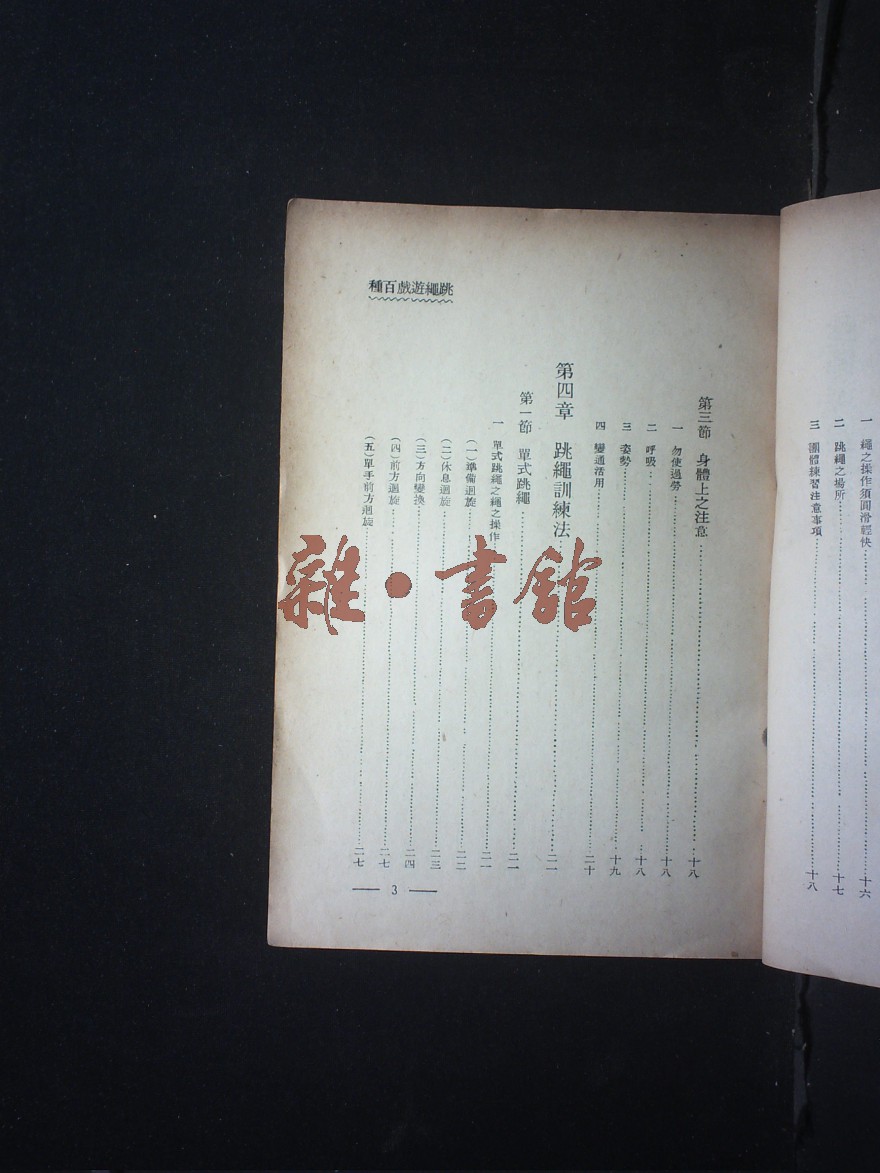 一 繩之操作須圓滑輕快……十六
二 跳繩之場所……十七
三 團體練習注意事項……十八
跳繩遊戲百種
第三節 身體上之注意……十八
一 勿使過勞……十八
二 呼吸……十八
三 姿勢……十九
四 變通活用……二十
第四章 跳繩訓練法……二一
第一節 單式跳繩……二一
一 單式跳繩之繩之操作……二一
（一）準備迴旋……二二
（二）休息迴旋……二三
（三）方向變換……二四
（四）前方迴旋……二七
（五）單手前方迴旋……二七
— 3 —
雜·書館